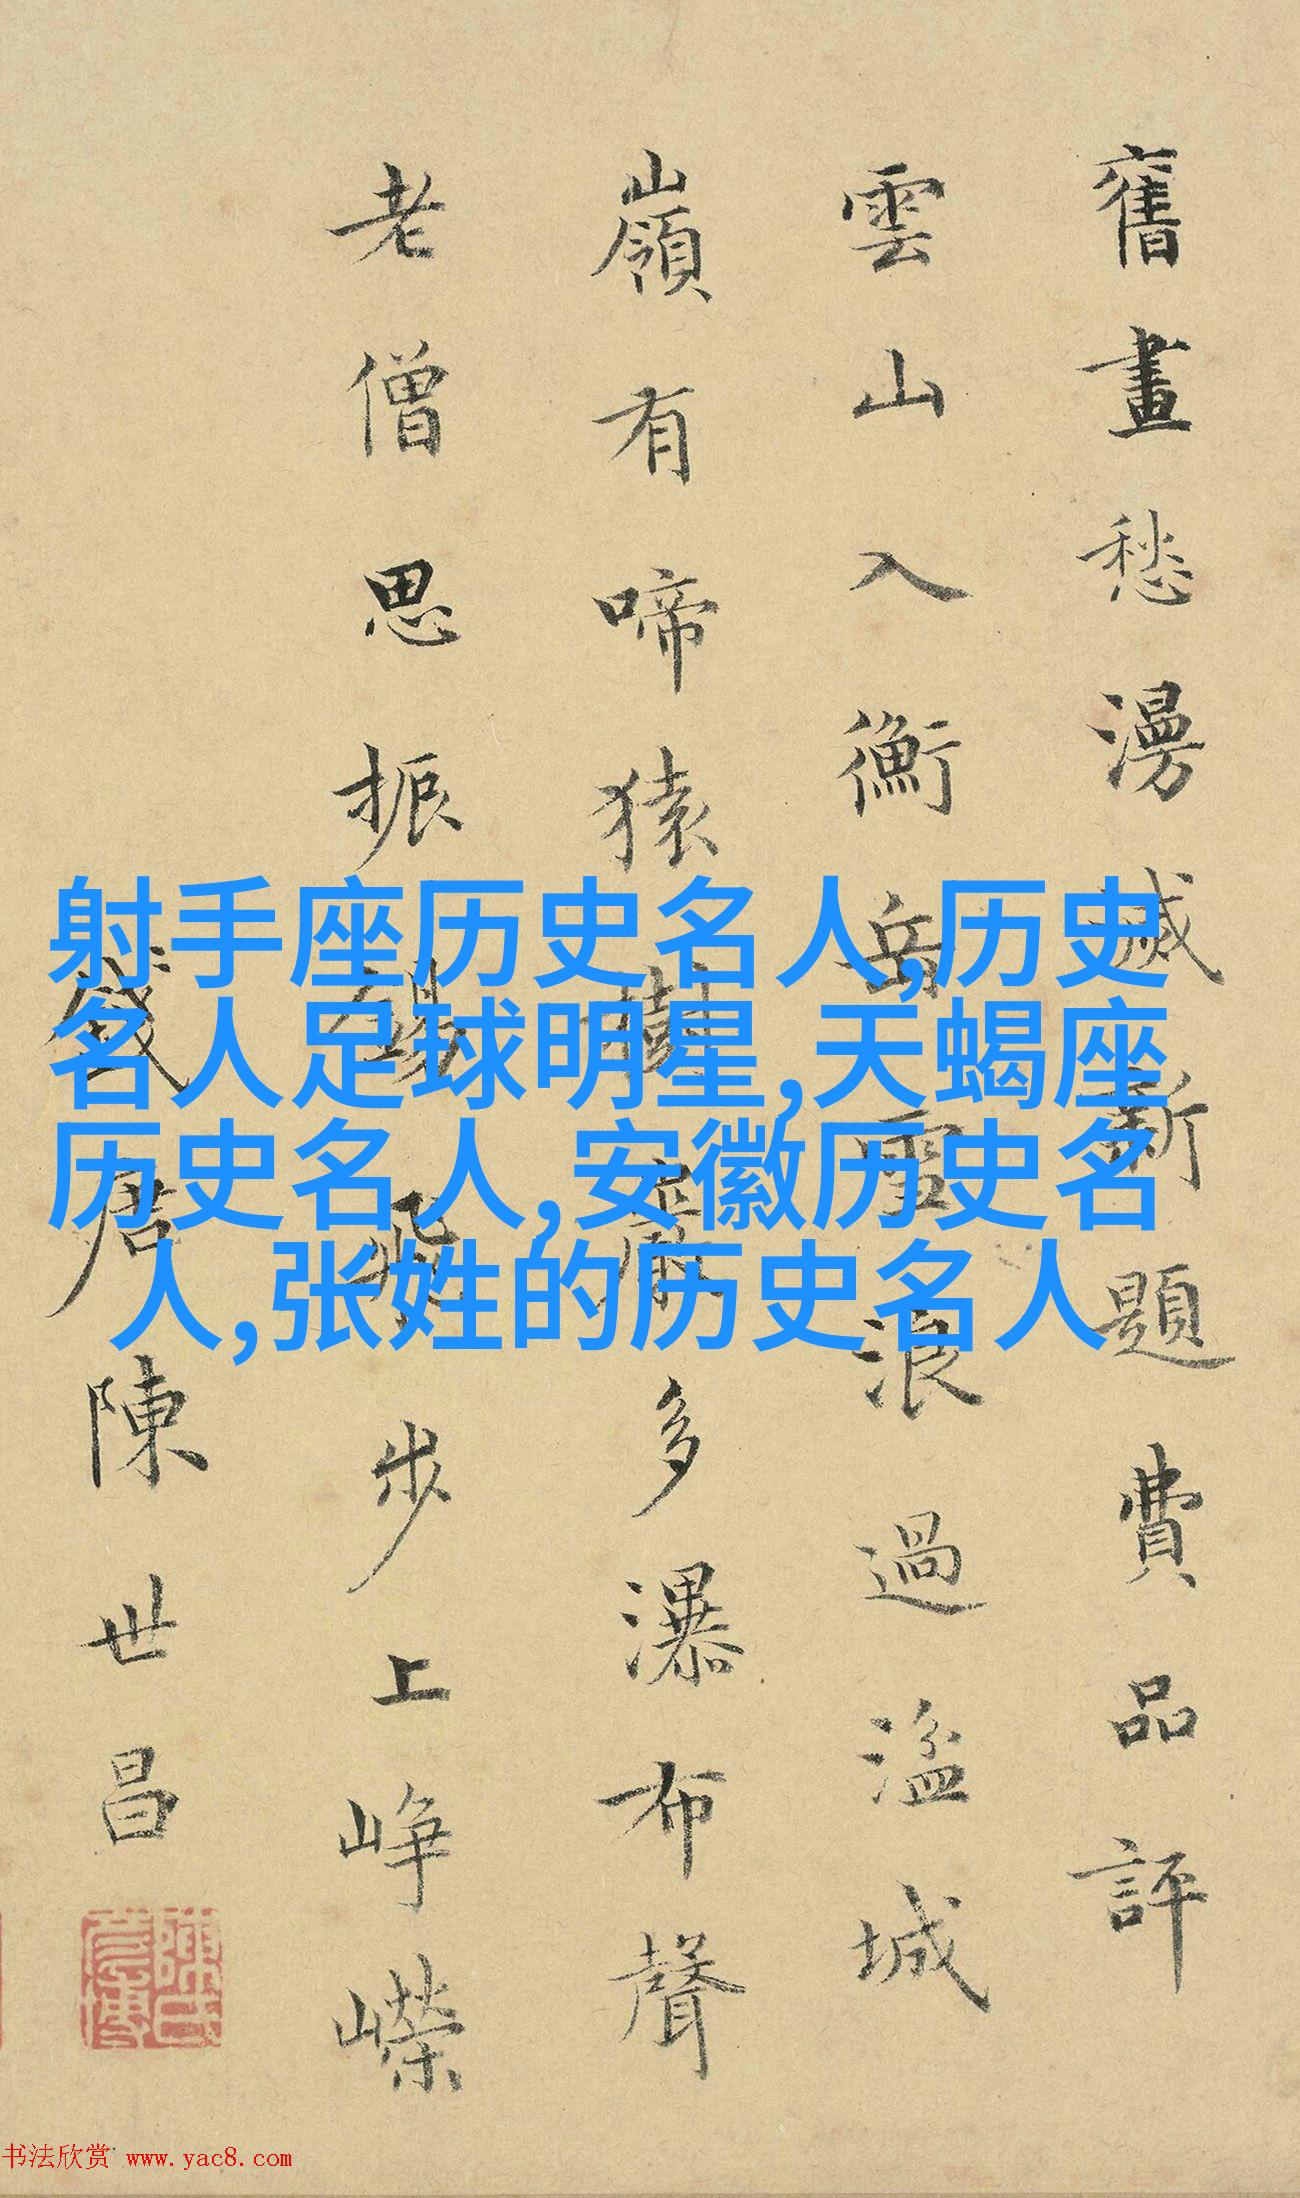 舊畫愁漫滅新題費品評
雲山入衡岳雪浪過湓城
嶺有啼猿樹巖多瀑布聲
老僧思振錫飛步上崢嶸
錢唐陳世昌
射手座历史名人,历史
名人足球明星,天蝎座
历史名人,安徽历史名
人,张姓的历史名人
书法欣赏 www.yac8.com